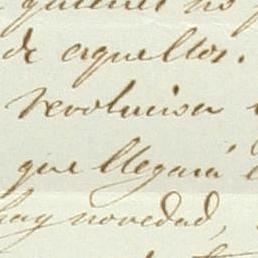 quienes no
de aquellos.
revolucion
que llegará
hay novedad,